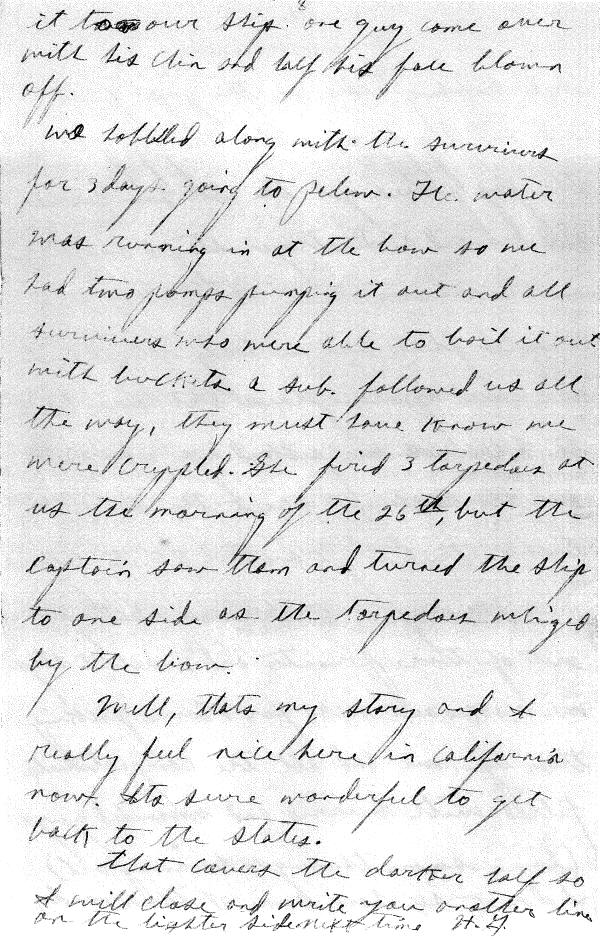 8
it to our ship. one guy come over
with his chin and half his face blown
off.
we hobbled along with the survivors
for 3 days going to pelew. The water
was running in at the bow so we
had two pomps pumping it out and all
survivers who were able to bail it out
with buckets a sub. followed us all
the way, they must have know we
were cryppled. She fired 3 torpedoes at
us the morning of the 26th, but the
Captain saw them and turned the ship
to one side as the torpedoes whized
by the bow.
Well, thats my story and I
really feel nice here in california
now. Its sure wonderful to get
back to the states.
that covers the darker half so
I will close and write you another line
on the lighter side next time H.G.